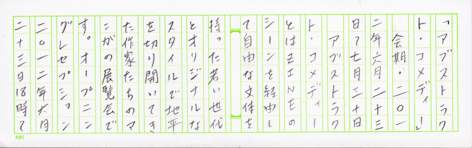 「アブストラク
ト・コメディ」
会期・二〇一
二年六月二十三
日〜七月三十日
アブストラク
ト・コメディー
とはZINEの
シーンを経由し
て自由な文体を
持った若い世代
とオリジナルな
スタイルで地平
を切り開いてき
た作家たちのマ
ンガの展覧会で
す。オープニン
グレセプション
二〇一二年六月
二十三日18時〜